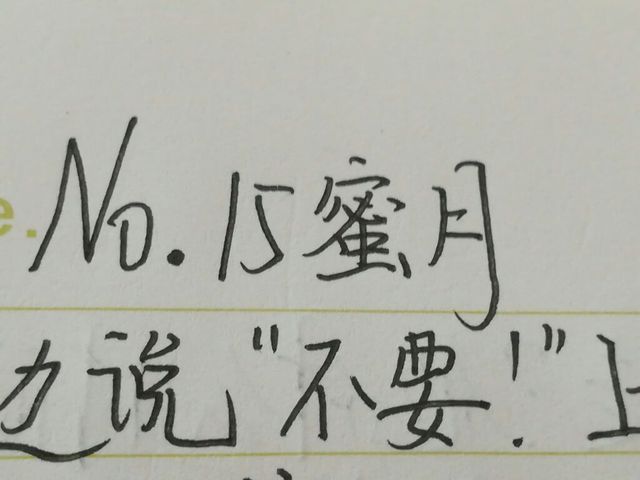 e.
No.15蜜月
边说“不要!”上